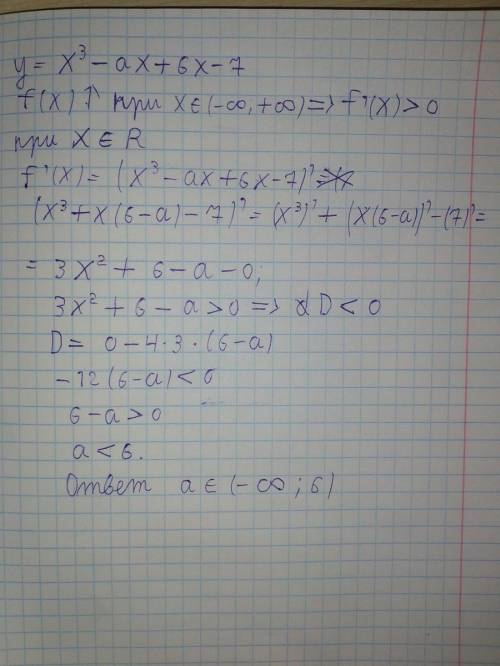 y = x³ – ax + 6x – 7
f(x) ↑ при x ∈ (–∞, +∞) => f'(x) > 0
при x ∈ R
f'(x) = (x³ – ax + 6x – 7)' =
(x³ + x(6 – a) – 7)' = (x³)' + (x(6 – a))' – (7)' =
= 3x² + 6 – a – 0;
3x² + 6 – a > 0 => D < 0
D = 0 – 4 · 3 · (6 – a)
–12(6 – a) < 0
6 – a > 0
a < 6.
Ответ a ∈ (–∞; 6)